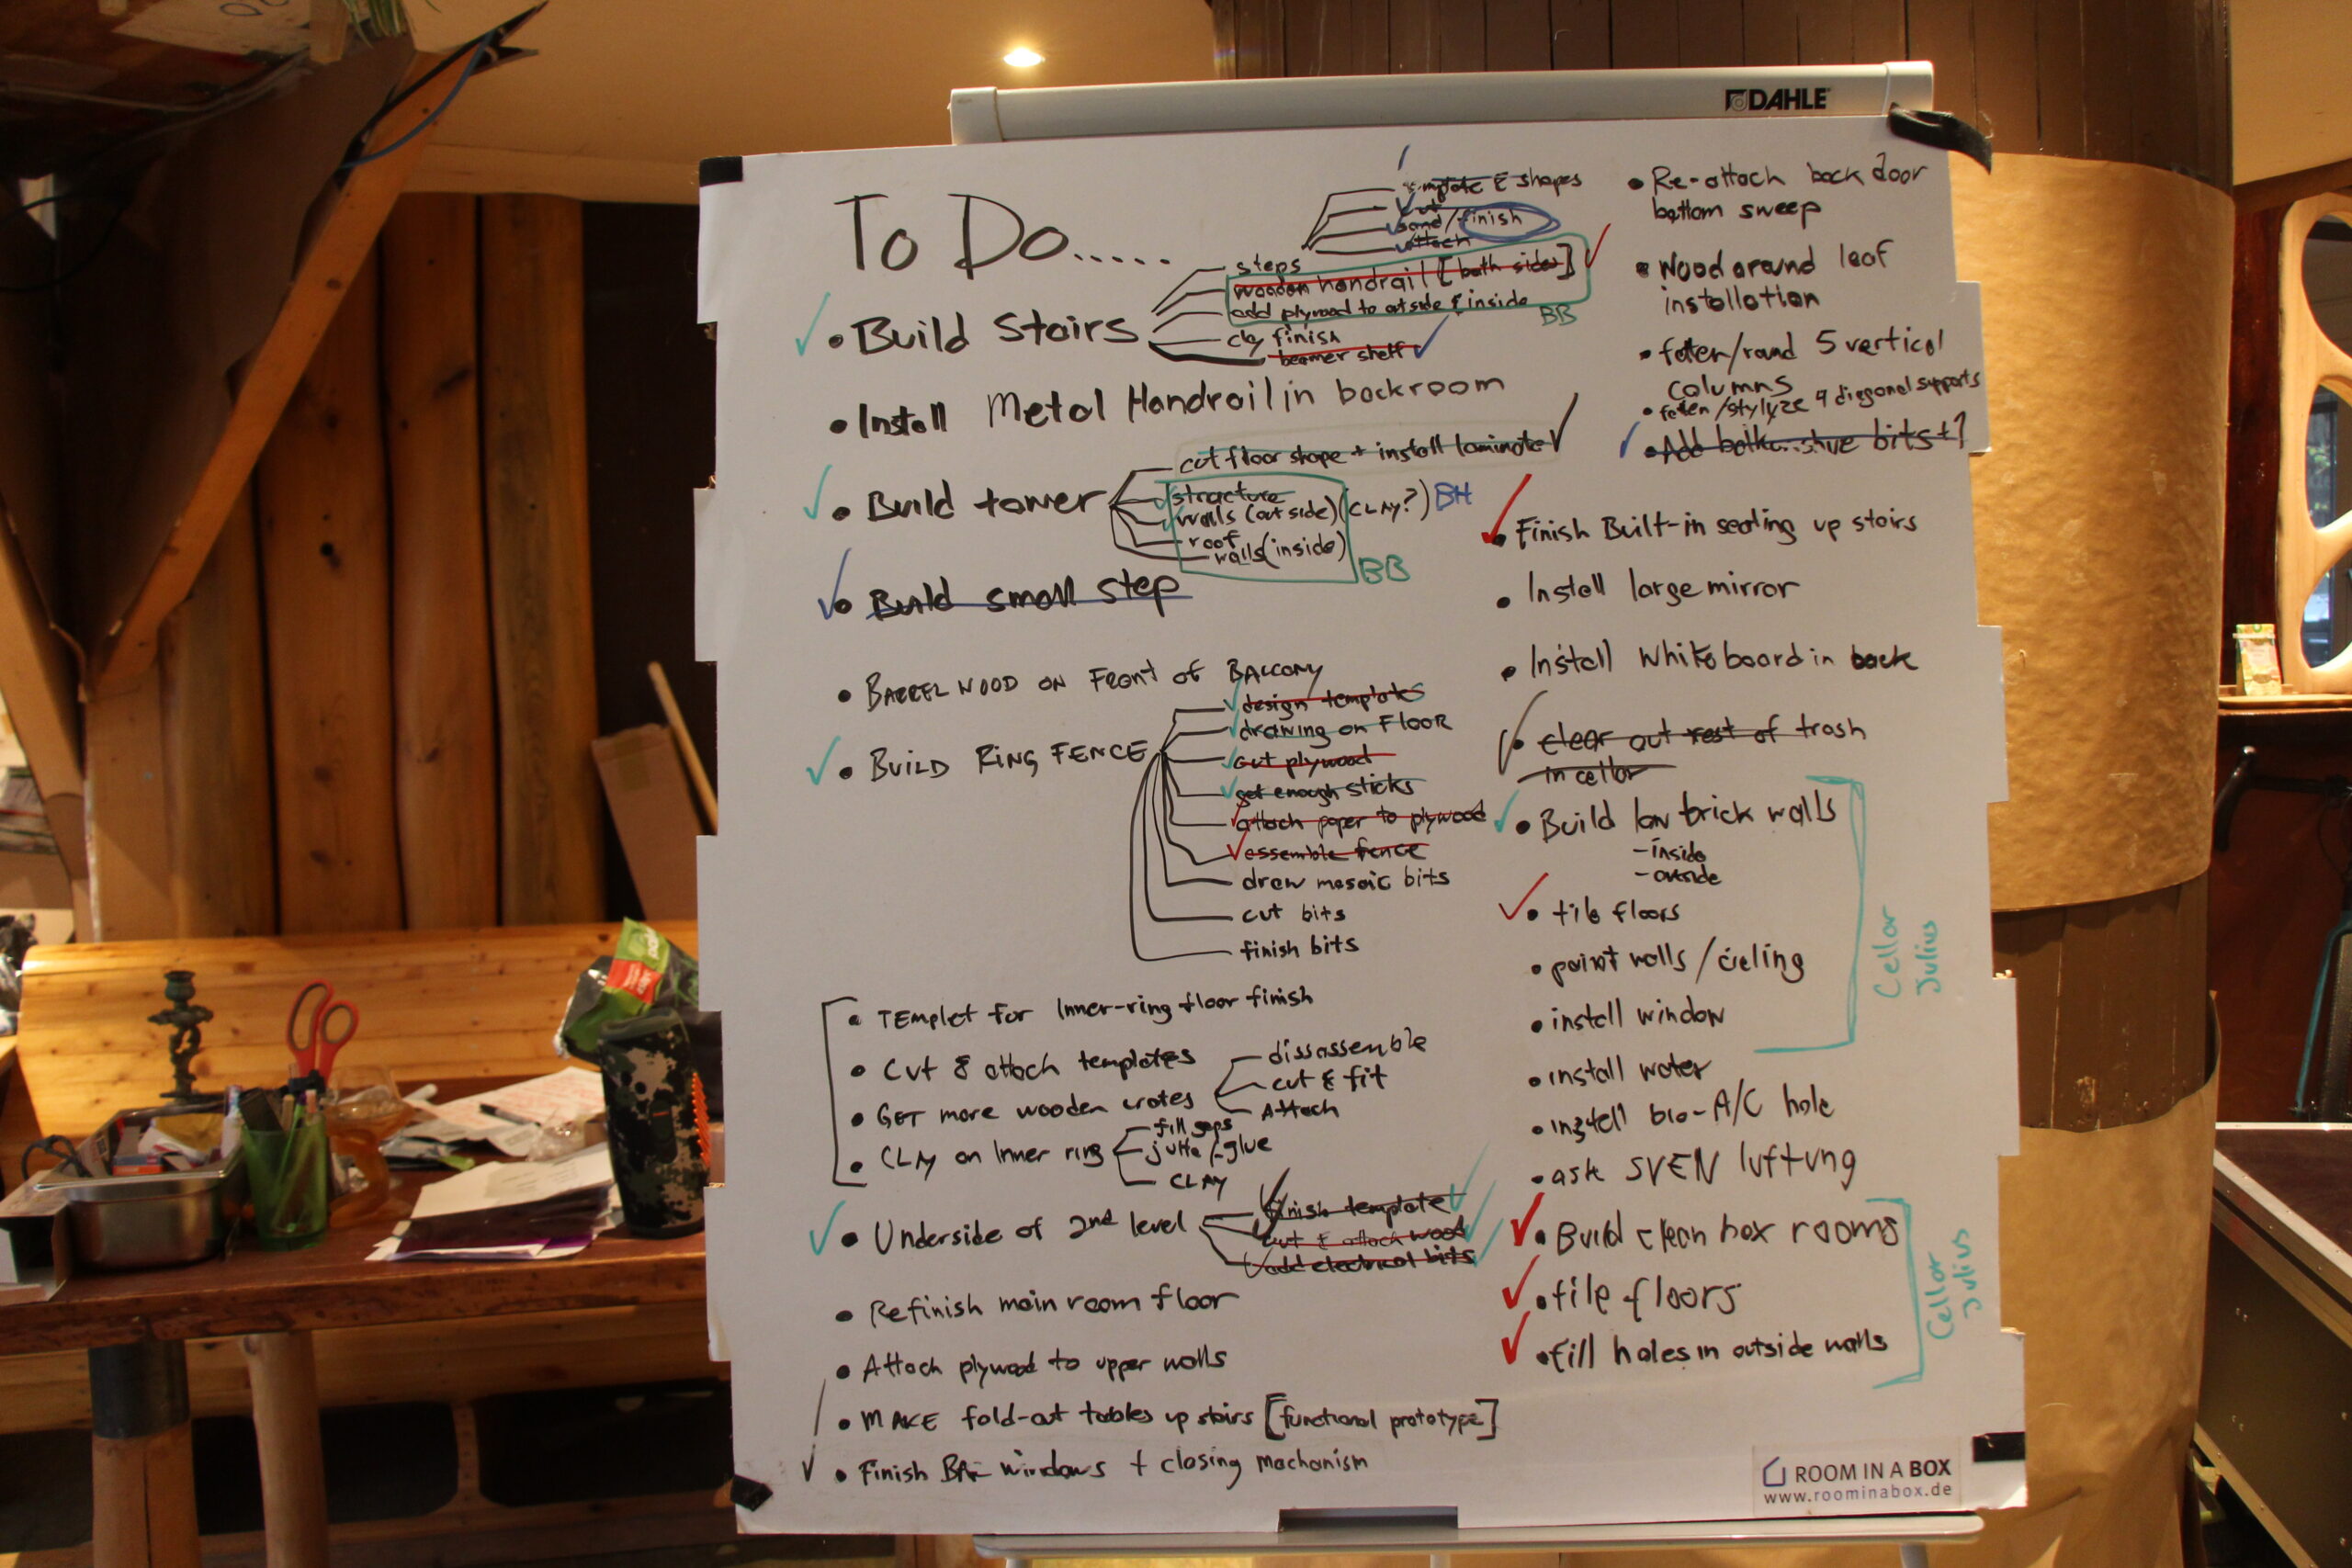 DAHLE
To Do.....
& shapes
cut
sand/finish
attach
steps
wooden handrail [both sides]
add plywood to outside & inside
BB
• Build Stairs
clay finish
beamer shelf
• Install Metal Handrail in backroom
cut floor shape + install laminate
• Build tower
structure
walls (outside) (CLAY?) BH
roof
walls (inside)
BB
• Build small step
• BARREL WOOD ON FRONT OF BALCONY
• BUILD RING FENCE
design template
drawing on FLOOR
cut plywood
get enough sticks
attach paper to plywood
assemble fence
draw mosaic bits
cut bits
finish bits
• TEmplet for Inner-ring floor finish
• Cut & attach templates
• GET more wooden crates
dissassemble
cut & fit
Attach
• CLAY on Inner ring
fill gaps
jutte/glue
CLAY
• Underside of 2nd level
finish template
cut & attach wood
add electrical bits
• Refinish main room floor
• Attach plywood to upper walls
• MAKE fold-out tables up stairs [functional prototype]
• Finish BAR windows + closing mechanism
• Re-attach back door
bottom sweep
• Wood around leaf
installation
• 5 vertical
columns
• /stylyze 4 diagonal supports
• Add bits + ?
• Finish Built-in seating up stairs
• Install large mirror
• Install Whiteboard in back
• clear out rest of trash
in cellar
• Build low brick walls
- inside
- outside
• tile floors
• paint walls / cieling
• install window
Cellar
Julius
• install water
• install bio-A/C hole
• ask SVEN luftung
• Build clean box rooms
• tile floors
• fill holes in outside walls
Cellar
Julius
ROOM IN A BOX
www.roominabox.de